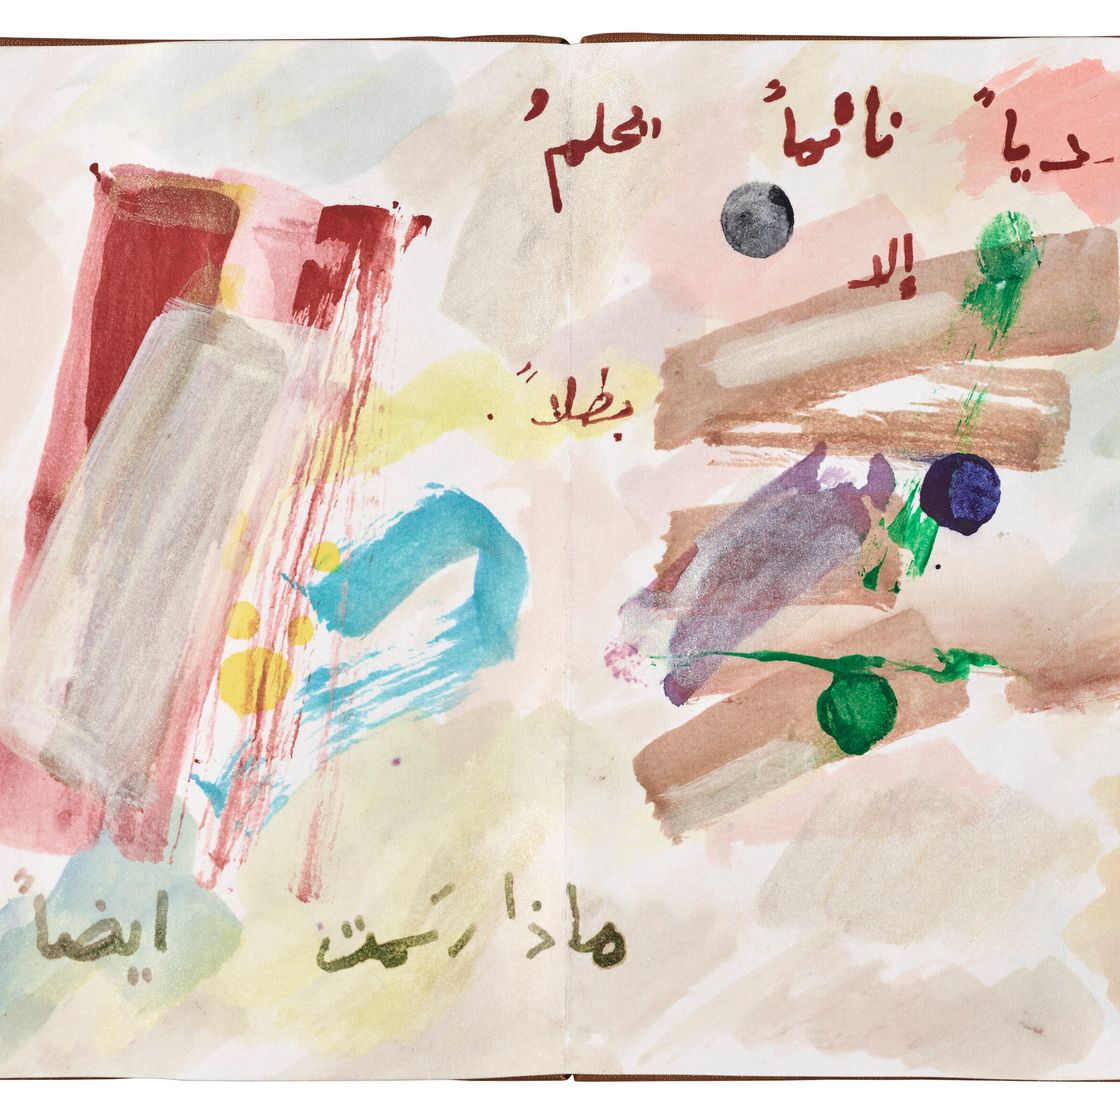 دياً نائماً الحلمُ
إلا
بطلاً
ماذا رسَمت ايضاً